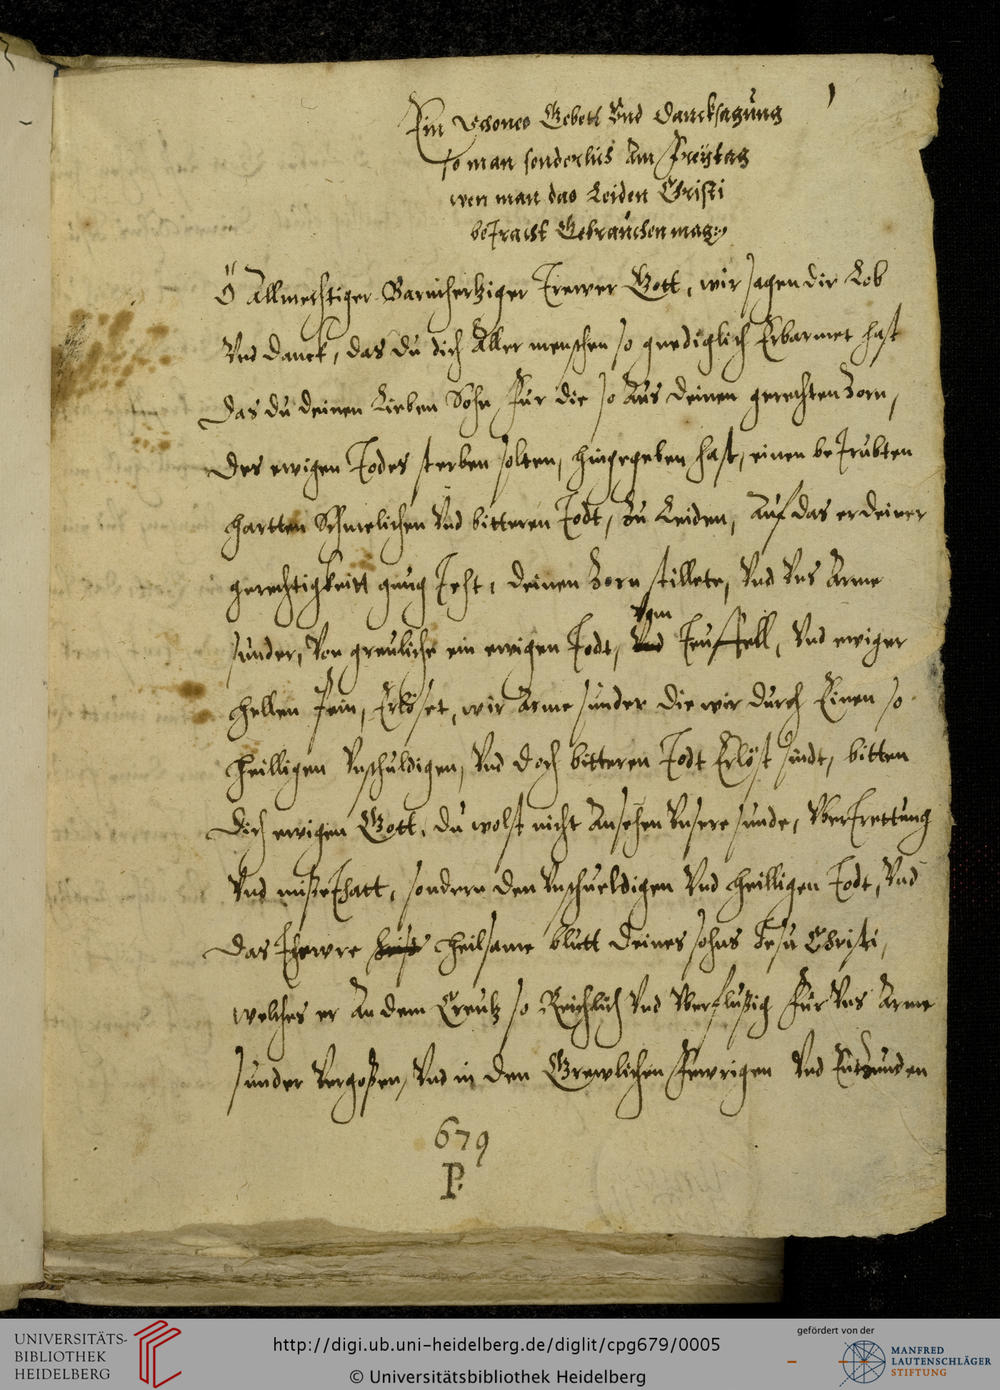 1
Ein schones Gebett Vnd dancksagung
so man sonderlich Am Freÿtag
wen man das Leiden Christi
betracht Gebrauchen mag
O Allmechtiger Barmhertziger Trewer Gott, wir sagen dir Lob
Vnd danck, das du dich Aller menschen so gnediglich Erbarmet hast
Das du deinen Lieben Sohn fur die so Aus deinen gerechten Zorn,
des ewigen Todes sterben solten, hingegeben hast, einen betrubten
hartten Schmelichen Vnd bitteren Todt, Zu Leiden, Auf das er deiner
gerechtigkeitt gnug Thet, deinen Zorn stillete, Vnd Vns Arme
vom
sunder, Von greuliche ein ewigen Todt, Vnd Teuffell, Vnd ewiger
hellen Pein, Erlöset, wir Arme sunder die wir durch Einen so
heilligen Vnschuldigen, Vnd doch bitteren Todt Erlöst sindt, bitten
dich ewigen Gott, du wolst nicht Ansehen Vnsere sunde, Vbertrettung
Vnd missethatt, sondern den Vnschueldigen Vnd heilligen Todt, Vnd
das Thewre heilsame blutt deines sohns Jesu Christi,
welches er An dem Creutz so Reichlich Vnd Vberflußig fur Vns Arme
sunder Vergoßen, Vnd in den Grewlichen fewrigen Vnd Entzunden
679
P.
UNIVERSITÄTS-
BIBLIOTHEK
HEIDELBERG
http://digi.ub.uni-heidelberg.de/diglit/cpg679/0005
© Universitätsbibliothek Heidelberg
gefördert von der
MANFRED
LAUTENSCHLÄGER
STIFTUNG